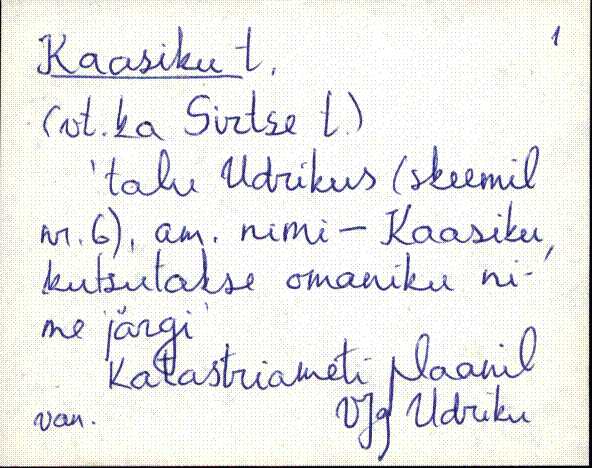 1
Kaasiku t.
(vt. ka Sirtse t.)
'talu Udrikus (skeemil
nr. 6), am. nimi – Kaasiku,
kutsutakse omaniku ni-
me järgi'
Katastriameti plaanil
van. VJg Udriku